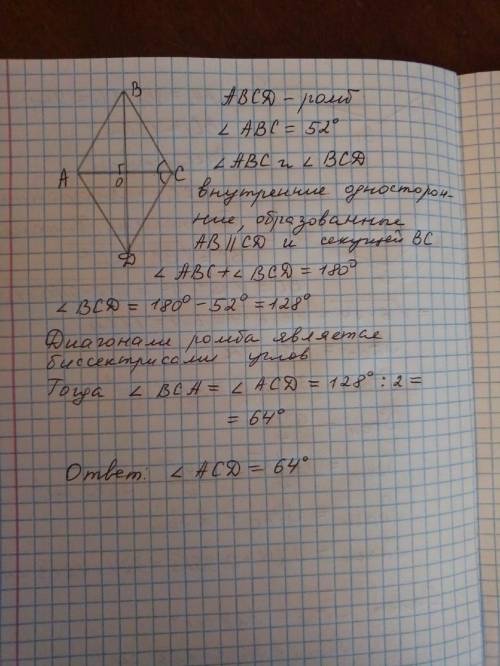 B
A
O
C
D
ABCD - ромб
∠ ABC = 52°
∠ ABC и ∠ BCD
внутренние односторон-
ние, образованные
AB || CD и секущей BC
∠ ABC + ∠ BCD = 180°
∠ BCD = 180° - 52° = 128°
Диагонали ромба является
биссектрисами углов
Тогда ∠ BCA = ∠ ACD = 128° : 2 =
= 64°
Ответ: ∠ ACD = 64°